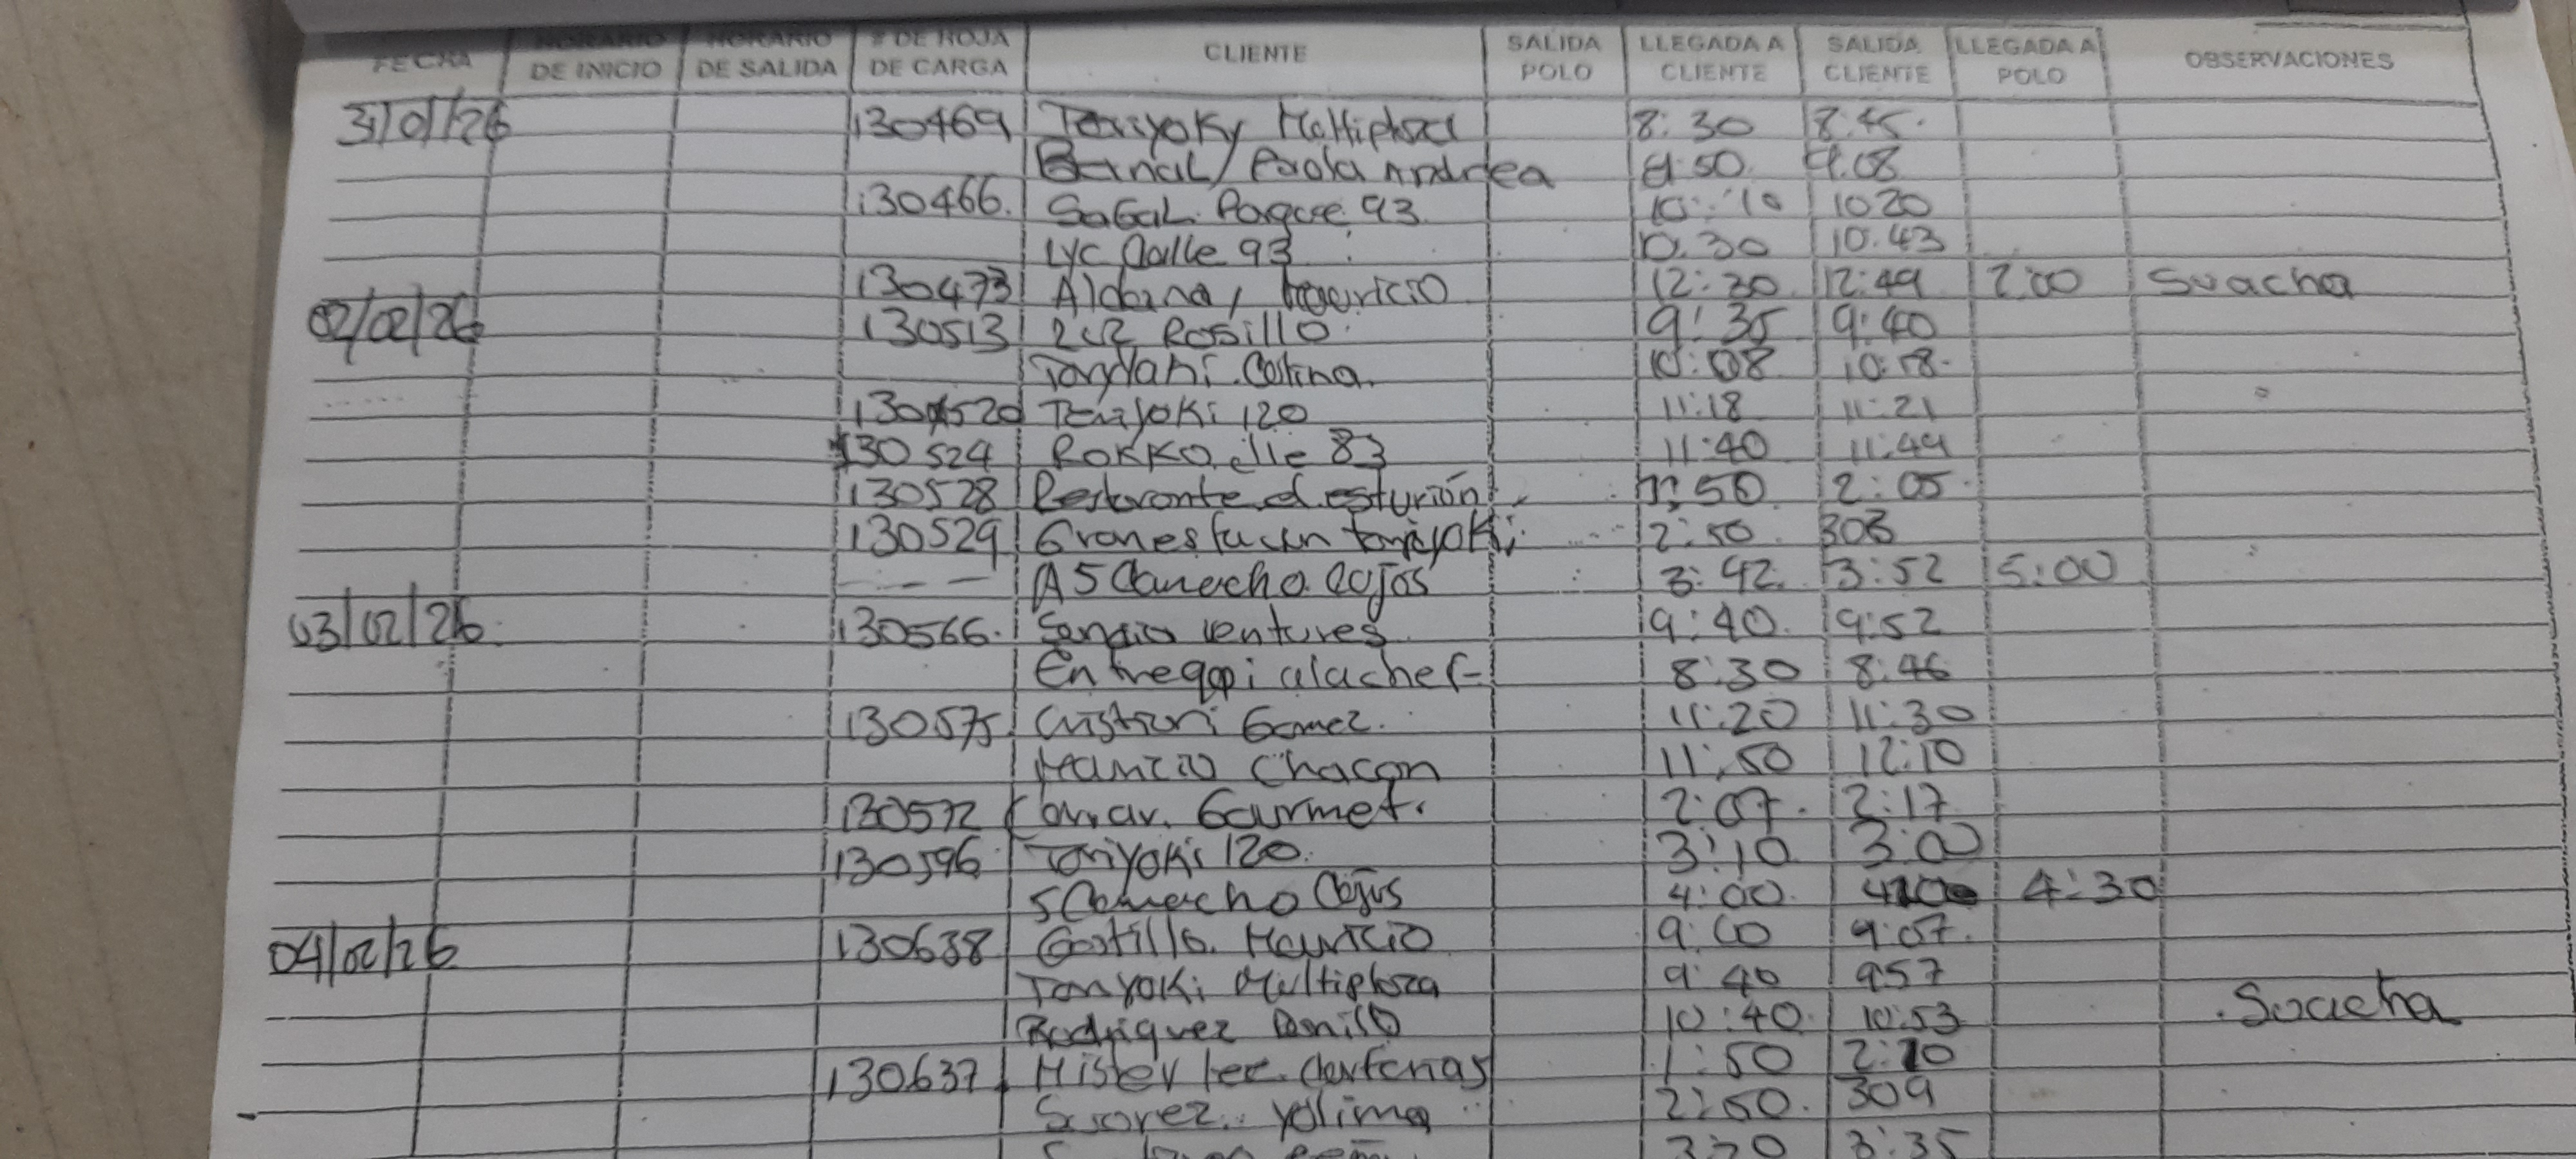 FECHA HORARIO DE INICIO HORARIO DE SALIDA # DE HOJA DE CARGA CLIENTE SALIDA POLO LLEGADA A CLIENTE SALIDA CLIENTE LLEGADA A POLO OBSERVACIONES
31/01/26 130469 Teriyoky Multiplaza 8:30 8:45
Bernal / Paola Andrea 8:50 9:08
130466 SaGaL Parque 93 10:10 1020
LYC Calle 93 10:30 10:43
130473 Aldana / Mauricio 12:30 12:49 2:00 Suacha
02/02/26 130513 Rosillo 9:35 9:40
Colina 10:08 10:18
130520 Teriyoki 120 11:18 11:21
130524 ROKKO clle 83 11:40 11:49
130528 Restorante el esturión :50 2:05
130529 2:50 303
A 5 Camacho Cojos 3:42 3:52 5:00
03/02/26 130566 ventures 9:40 9:52
8:30 8:46
130575 Cristian Gomez 11:20 11:30
Mauricio Chacon 11:50 12:10
130572 Gourmet 2:07 2:17
130596 Toriyoki 120 3:10 3:00
5 Camacho Cojos 4:00 4:30
04/02/26 130638 Castillo Mauricio 9:00 9:07
Tonyoki Multiplaza 9:40 957
Rodriguez Danilo 10:40 10:53 Suacha
130637 Mister lee 1:50 2:10
Suorez Yolima 2:50 309
3:35